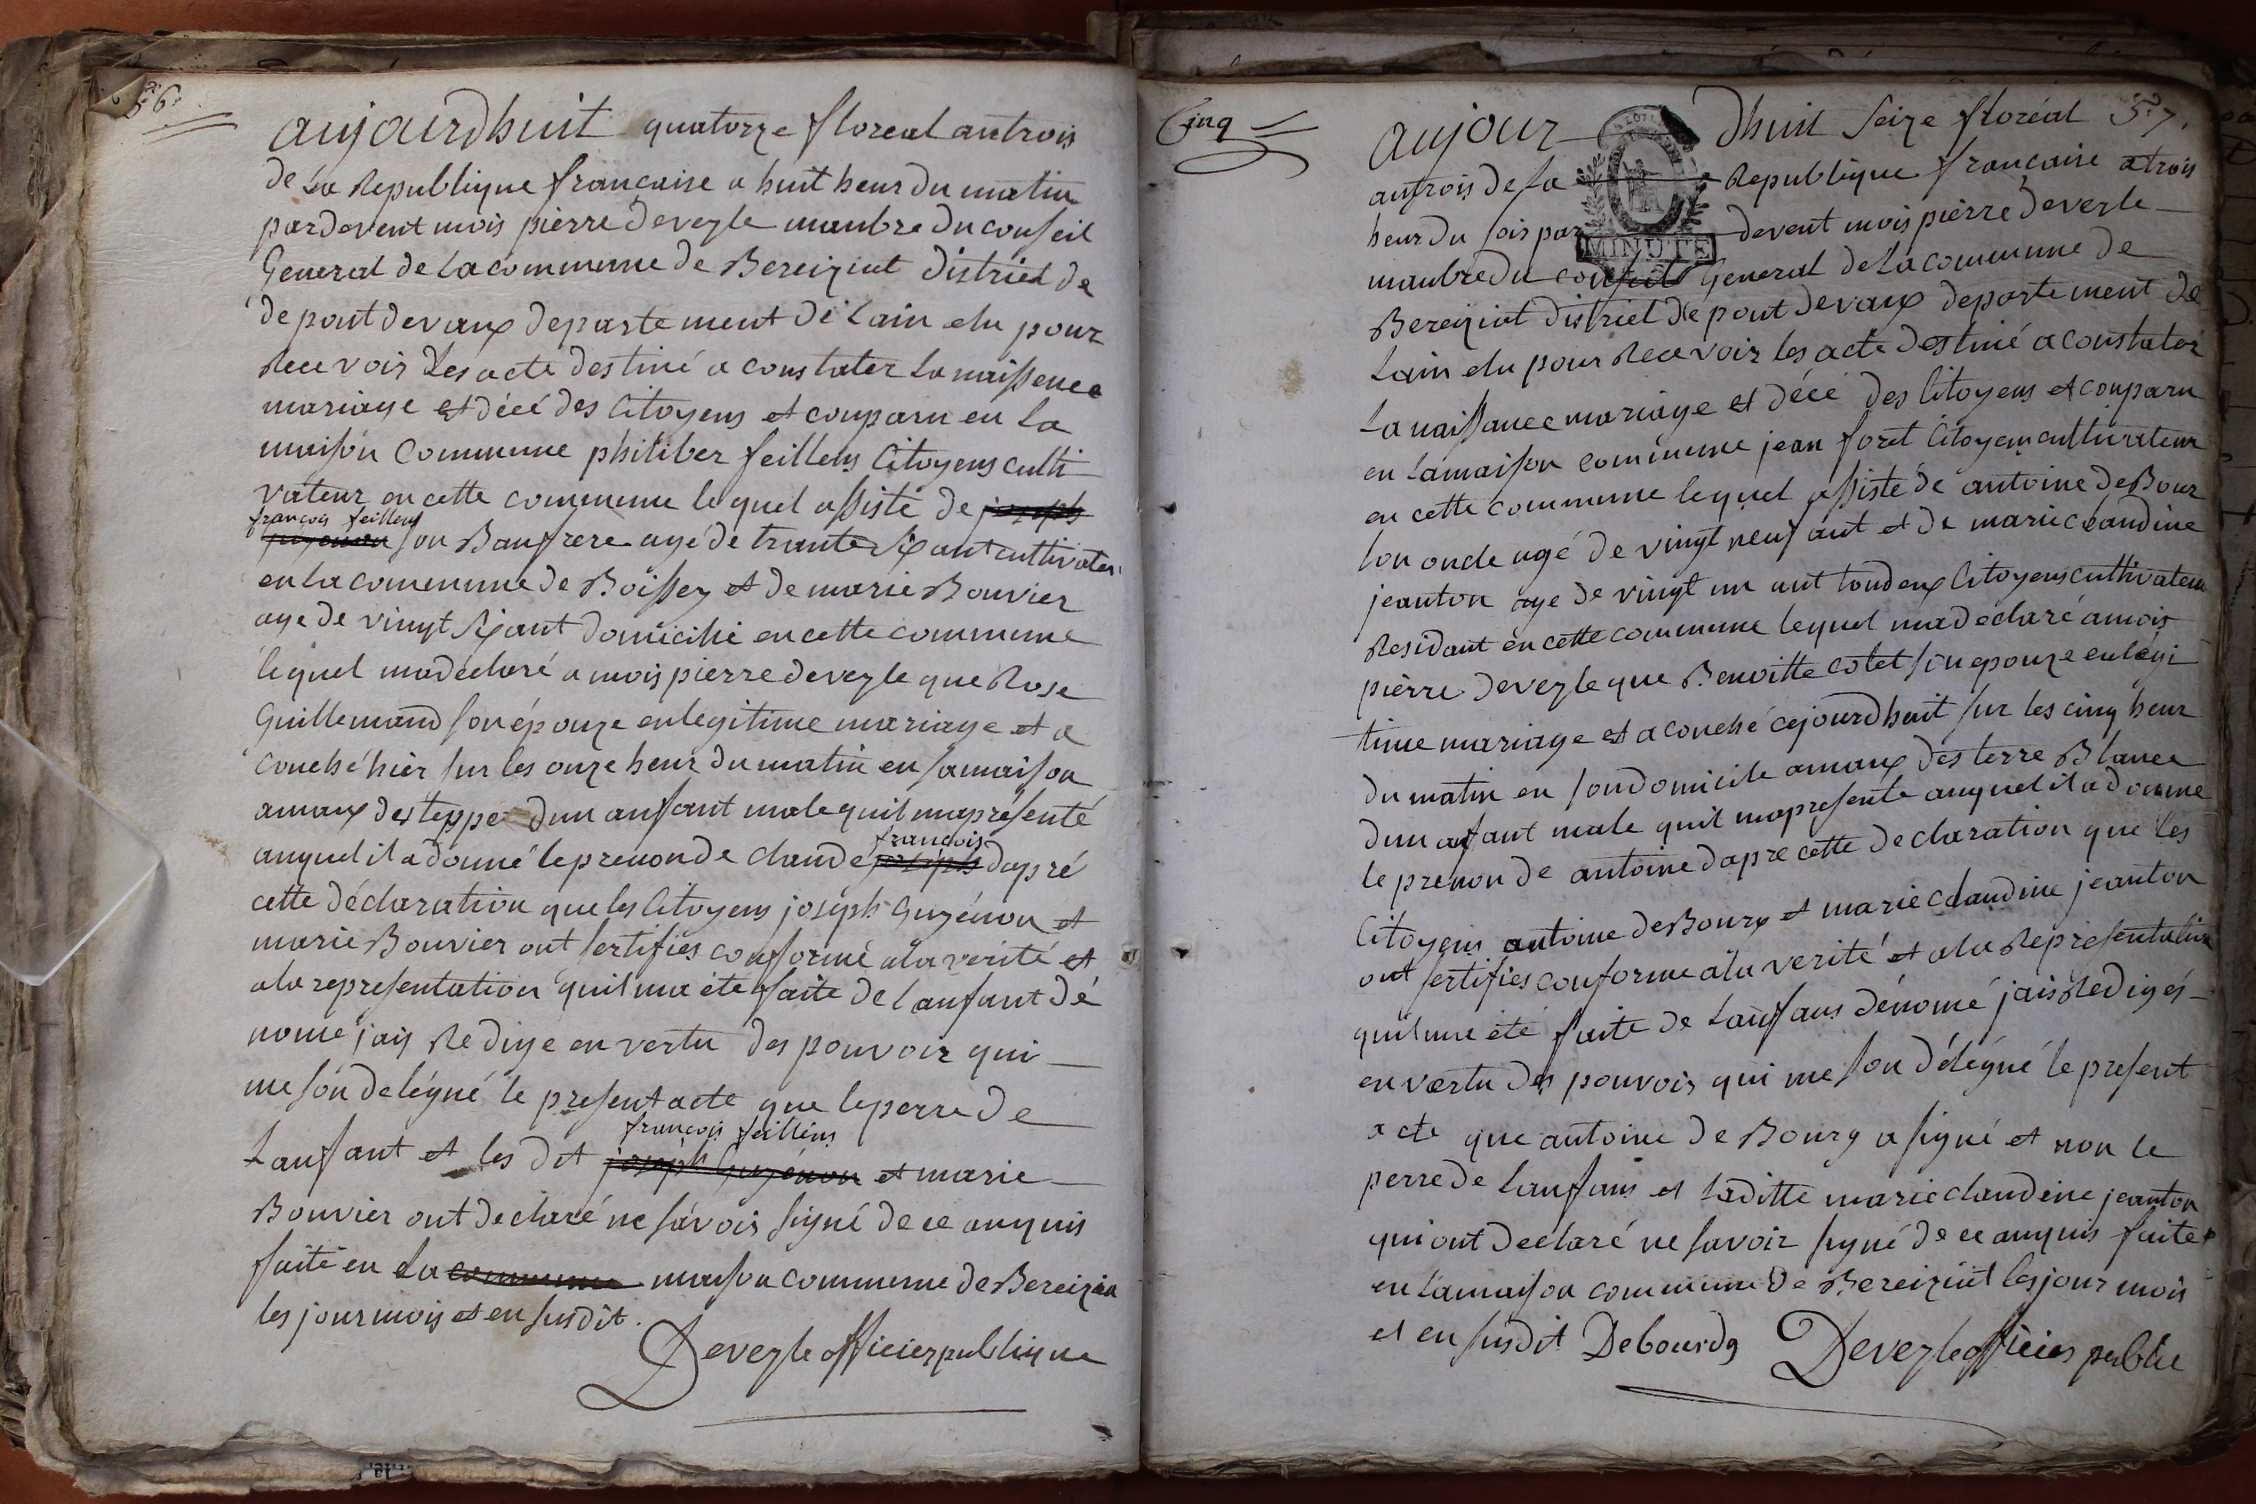 56.
aujourdhuit quatorze floreal antrois
de La Republique francaise a huit heur du matin
pardevent mois pierre deveyle manbre du conseil
General de La commune de Bereiziat district de
de pont devaux departement de Lain elu pour
Recevoir Les acte destiné a constater La naissence
mariage et décé des Citoyens et conparu en La
maison Commune philiber feillens Citoyens culti
vateur en cette commune lequel assisté de joseph
françois feillens
guyénon son Baufrere agé de trante six ant cultivateur
en La commune de Boissey et de marie Bouvier
age de vingt six ant domicilié en cette commune
lequel madeclaré a mois pierre deveyle que Rose
Guillemaud son épouze en legitime mariage et a
couché hier sur les onze heur du matin en sa maison
amaux des teppe dun anfant male quil ma présenté
françois
auquel il a donné le prenon de claude joseph dapré
cette déclaration que les Citoyens joseph Guyénon et
marie Bouvier ont sertifies conforme a la vérité et
a la representation quil ma été faite de Lanfant dé
nomé jais Redige en vertu des pouvoir qui
me son délégué le present acte que le perre de
françois feillens
Lanfant et les dit joseph Guyénon et marie
Bouvier ont declaré ne savois signé de ce anquis
faite en La commune maison commune de Bereizia
les jour mois et en susdit.
Deveyle officier publique
Cinq
aujour dhuit Seize floréal 57.
antrois de La Republique francaise a trois
heur du soir par devent mois pierre deveyle
MINUTE
manbre du conseil General de La commune de
Bereiziat district de pont devaux departement de
Lain elu pour Recevoir les acte destiné a constater
La naissance mariage et décé des Citoyens et conparu
en La maison commune jean foret Citoyens cultivateur
en cette commune lequel assisté de antoine de Bour
son oncle agé de vingt neuf ant et de marie claudine
jeanton age de vingt un ant toudeux Citoyens cultivateur
Residant en cette commune lequel madéclaré a mois
pierre deveyle que Benoitte colet son epouze en légi
time mariage et a couché cejourdhuit sur les cinq heur
du matin en son domicile amaux des terre Blance
dun anfant male quil ma presente auquel il a donné
le prenon de antoine dapre cette declaration que les
Citoyens antoine de Bourg et marie claudine jeanton
ont sertifies conforme a la verité et a la Representation
quil me été faite de Lanfans dénomé jais Rediges
en vertu des pouvois qui me son délégué le present
acte que antoine de Bourg a signé et non le
perre de Lanfans et Laditte marie claudine jeanton
qui ont declaré ne savoir signé de ce anquis faite
en La maison commune de Bereiziat les jour mois
et en susdit Debourdg Deveyle officier publie